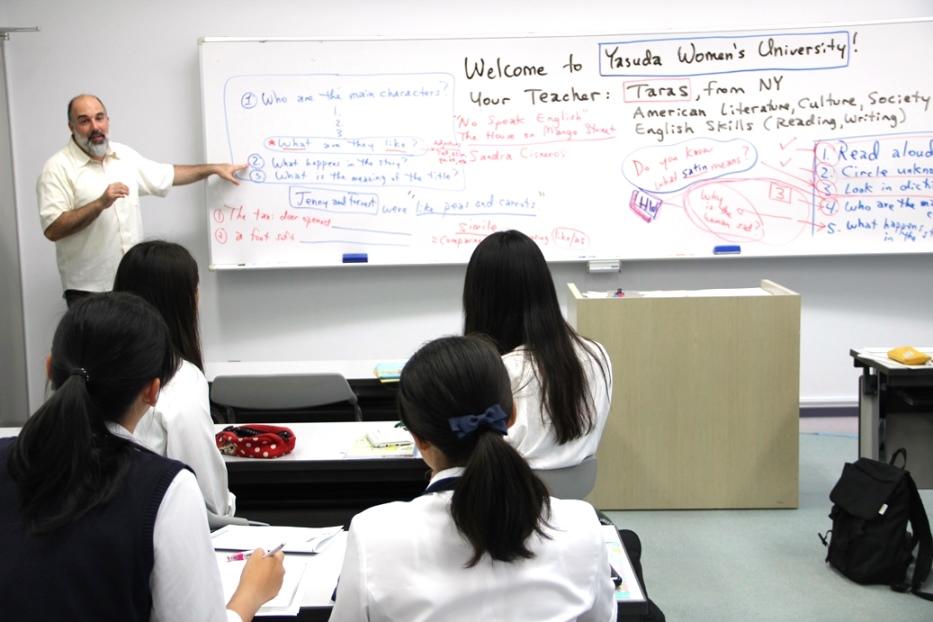 Welcome to Yasuda Women's University!
Your Teacher: Taras, from NY
American Literature, Culture, Society
English Skills (Reading, Writing)
① Who are the main characters?
1.
2
3
* What are they like?
② What happens in the story?
③ What is the meaning of the title?
"No Speak English"
The House on Mango Street
Sandra Cisneros
Jenny and Forrest were "like peas and carrots"
① The taxi door opened
② a foot soft
Simile
like/as
Do you know
what satin means?
HW
Why
is the
human sad?
3
1. Read aloud
2. Circle unkno
3. Look in dicti
4. Who are the ma
5. What happens
in the st